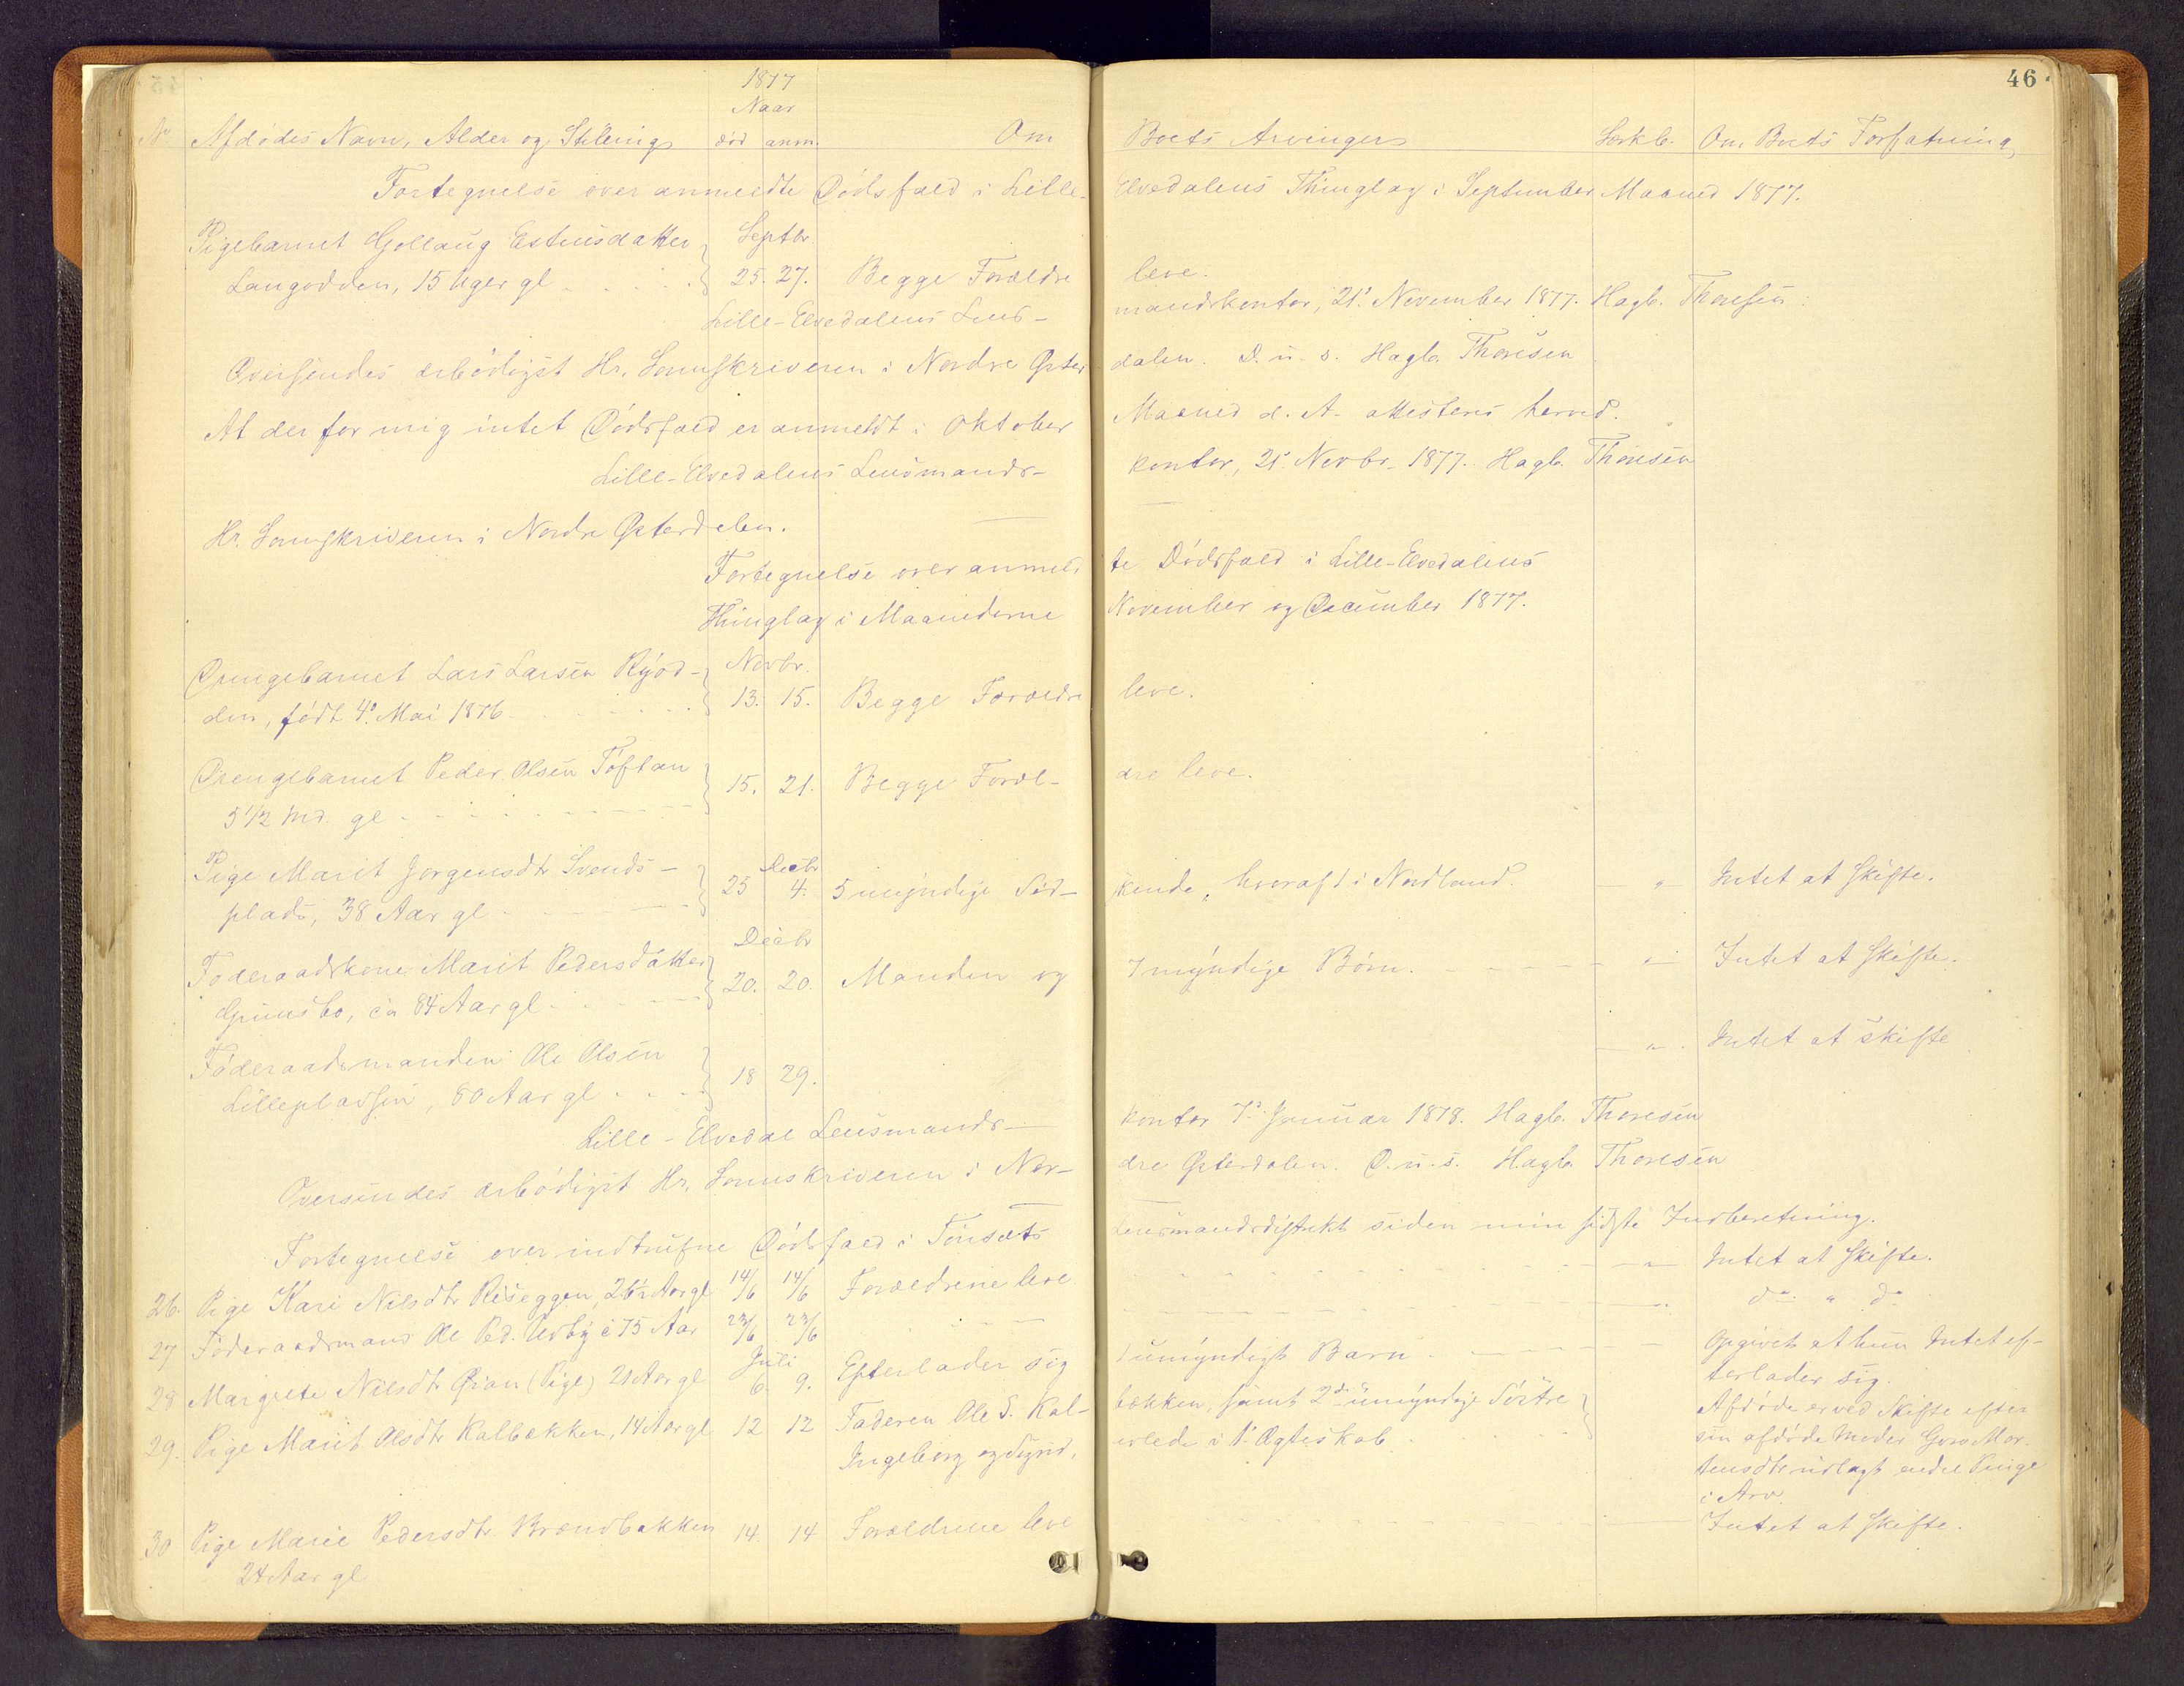 46
1877
Naar
No Afdødes Navn, Alder og Stilling død anm. Om Boets Arvinger Særkb. Om Boets Forfatning
Fortegnelse over anmeldte Dødsfald i Lille-Elvedalens Thinglag i September Maaned 1877.
Pigebarnet Gollaug Estensdatter Septbr.
Langodden, 15 Uger gl 25. 27. Begge Forældre leve.
Lille-Elvedalens Lensmandskontor, 21. November 1877. Hagb. Thoresen
Oversendes ærbødigst Hr. Sorenskriveren i Nordre Østerdalen. D. u. s. Hagb. Thoresen
At der for mig intet Dødsfald er anmeldt i Oktober Maaned d. A. attesteres herved.
Lille-Elvedalens Lensmandskontor, 21. Novbr. 1877. Hagb. Thoresen
Hr. Sorenskriveren i Nordre Østerdalen.
Fortegnelse over anmeldte Dødsfald i Lille-Elvedalens
Thinglag i Maanederne November og December 1877.
Drengebarnet Lars Larsen Ryød- Novbr.
den, født 4. Mai 1876 13. 15. Begge Forældre leve.
Drengebarnet Peder Olsen Tøftan 15. 21. Begge Forældre leve.
5 1/2 Md. gl
Pige Marit Jørgensdtr Svends- Decbr
plads, 38 Aar gl 25 4. 5 myndige Sødskende, hvoraf 1 i Nordland. " Intet at skifte.
Decbr
Føderaadskone Marit Pedersdatter 20. 20. Manden og 7 myndige Børn. " Intet at skifte.
Grimsbo, ca 84 Aar gl
Føderaadsmanden Ole Olsen 18 29. " Intet at skifte
Lillepladsen, 80 Aar gl
Lille-Elvedal Lensmandskontor 7. Januar 1878. Hagb. Thoresen
Oversendes ærbødigst Hr. Sorenskriveren i Nordre Østerdalen. D. u. s. Hagb. Thoresen
Fortegnelse over indtrufne Dødsfald i Tønsæts Lensmandsdistrikt siden min sidste Indberetning.
26. Pige Kari Nilsdtr Riseggen, 26 1/2 Aar gl 14/6 14/6 Forældrene leve " Intet at skifte.
27 Føderaadsmand Ole Ped. Urby c 75 Aar 23/6 23/6 do " do
Juli
28 Margrete Nilsdtr Øian (Pige) 21 Aar gl 6. 9. Efterlader sig 1 umyndigt Barn Opgivet at hun Intet ef-
terlader sig.
29. Pige Marit Olsdtr Kalbækken, 14 Aar gl 12 12 Faderen Ole S. Kalbækken, samt 2de umyndige Søstre Afdøde er ved Skifte efter
Ingeborg og Sigrid, avlede i 1. Ægteskab sin afdøde Moder Guro Mor-
tensdtr udlagt endel Penge
i Arv
30 Pige Marie Pedersdtr Brændbakken 14. 14 Forældrene leve Intet at skifte.
24 Aar gl